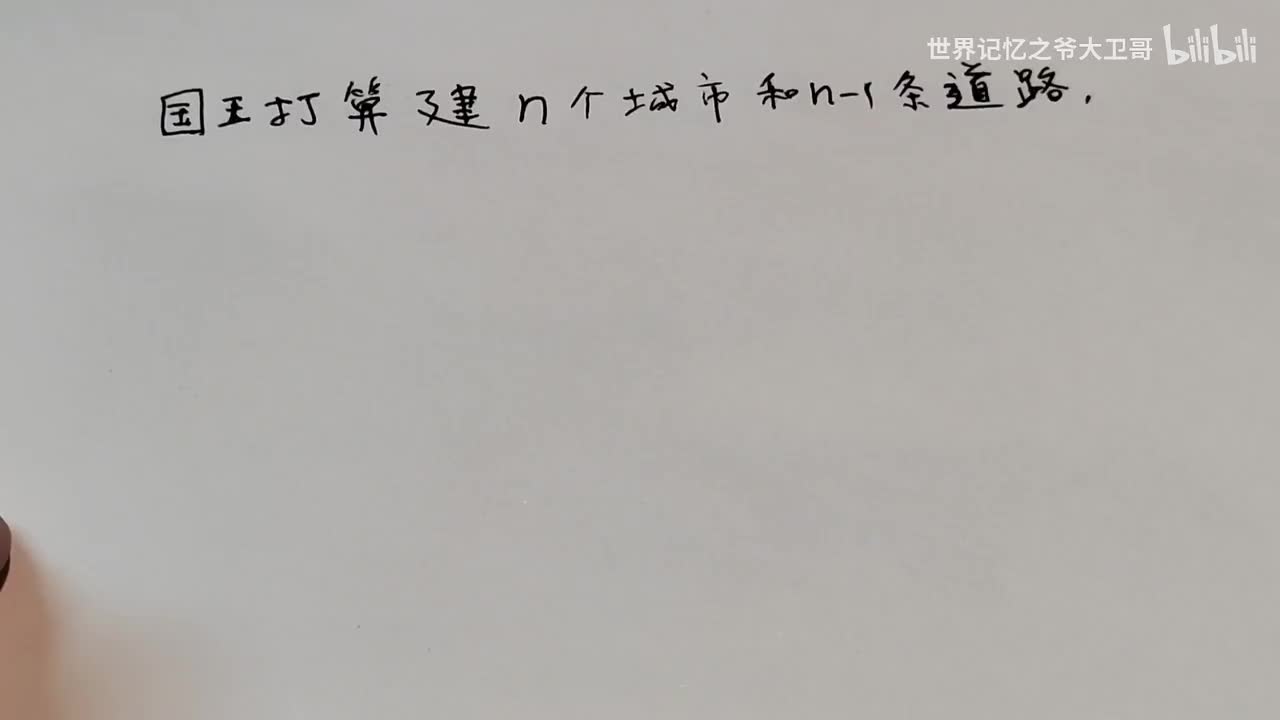 世界记忆之爷大卫哥 bilibili
国王打算建n个城市和n-1条道路.